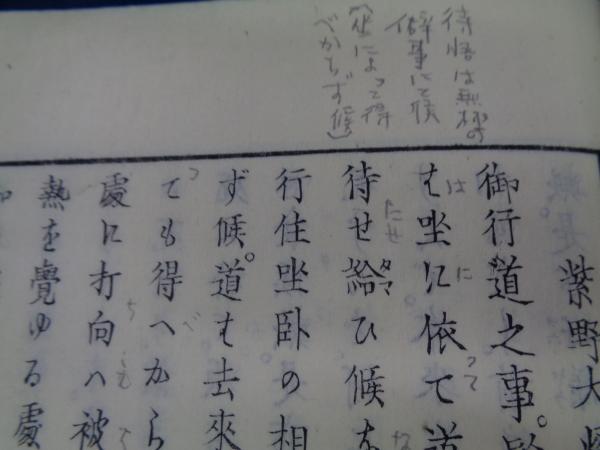 待悟は無極の
僻事にて候
(坐によって得
べからず候)
紫野大
御行道之事。
は坐に依て道
待せ給ひ候
行住坐臥の相
ず候。道は去來
ても得へから
處に打向ハ被
熱を覺ゆる處